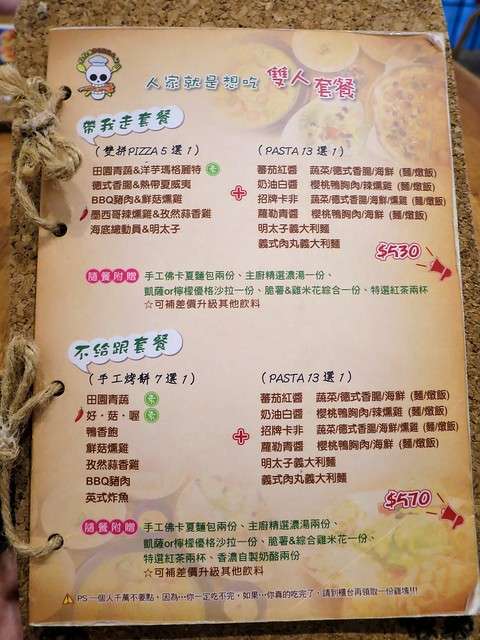 人家就是想吃 雙人套餐
帶我走套餐
(雙拼PIZZA 5 選 1)
田園青蔬&洋芋瑪格麗特
德式香腸&熱帶夏威夷
BBQ豬肉&鮮菇燻雞
墨西哥辣燻雞&孜然蒜香雞
海底總動員&明太子
+
(PASTA 13 選 1)
蕃茄紅醬 蔬菜/德式香腸/海鮮 (麵/燉飯)
奶油白醬 櫻桃鴨胸肉/辣燻雞 (麵/燉飯)
招牌卡非 蔬菜/德式香腸/海鮮/燻雞 (麵/燉飯)
羅勒青醬 櫻桃鴨胸肉/海鮮 (麵/燉飯)
明太子義大利麵
義式肉丸義大利麵
$530
隨餐附贈 手工佛卡夏麵包兩份、主廚精選濃湯一份、
凱薩or檸檬優格沙拉一份、脆薯&雞米花綜合一份、特選紅茶兩杯
☆可補差價升級其他飲料
不給跟套餐
(手工烤餅 7 選 1)
田園青蔬
好・菇・喔
鴨香飽
鮮菇燻雞
孜然蒜香雞
BBQ豬肉
英式炸魚
+
(PASTA 13 選 1)
蕃茄紅醬 蔬菜/德式香腸/海鮮 (麵/燉飯)
奶油白醬 櫻桃鴨胸肉/辣燻雞 (麵/燉飯)
招牌卡非 蔬菜/德式香腸/海鮮/燻雞 (麵/燉飯)
羅勒青醬 櫻桃鴨胸肉/海鮮 (麵/燉飯)
明太子義大利麵
義式肉丸義大利麵
$570
隨餐附贈 手工佛卡夏麵包兩份、主廚精選濃湯兩份、
凱薩or檸檬優格沙拉一份、脆薯&綜合雞米花一份、
特選紅茶兩杯、香濃自製奶酪兩份
☆可補差價升級其他飲料
PS 一個人千萬不要點，因為…你一定吃不完，如果…你真的吃完了，請到櫃台再領取一份雞塊!!!